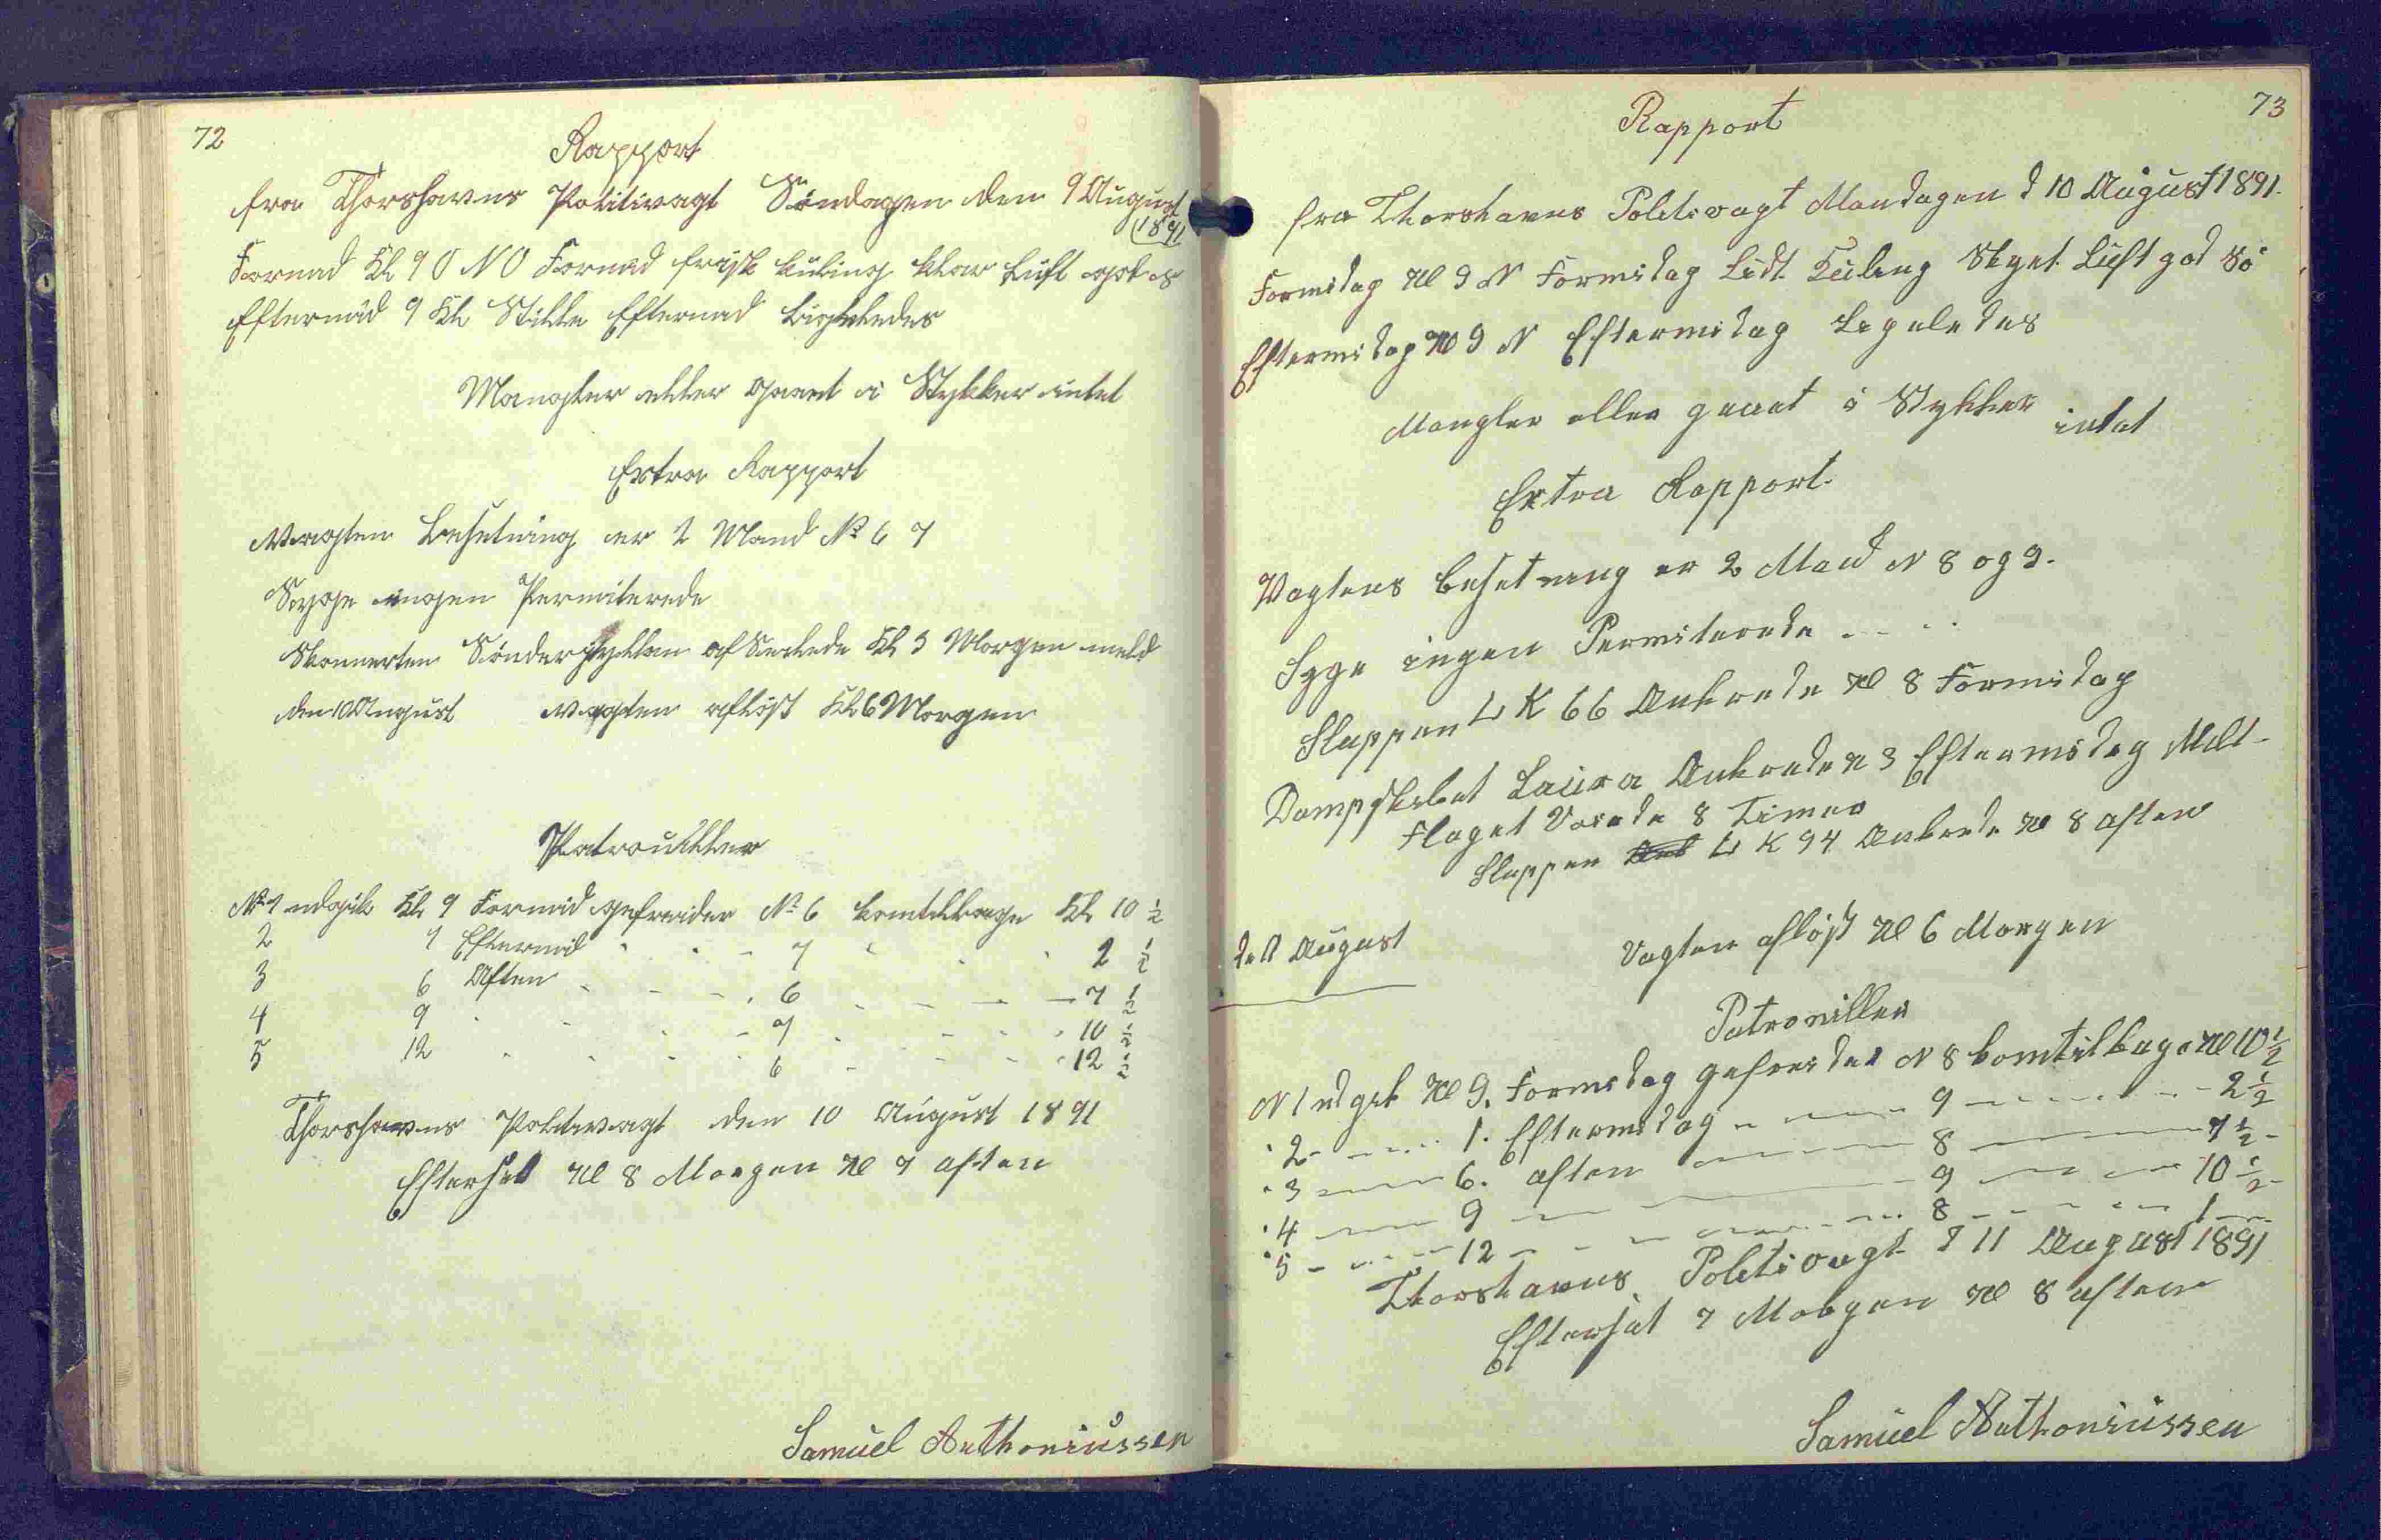 72
Rapport
fra Thorshavns Politivagt Søndagen den 9 August
1891
Formad Kl 9 O NO Formad frisk kuling klar Luft
Eftermid 9 Kl Stille Eftermad Ligeledes
Mangler eller gaaet i Stykker intet
Extra Rapport
Vagten Besetning er 2 Mand No 6 7
Syge ingen Permiterede
Skonnerten af Seilede Kl 3 Morgen meld
den 10 August Vagten afløst Kl 6 Morgen
Patrouiller
No 1 udgik Kl 9 Formid gefreider No 6 komtilbage Kl 10 ½
2 1 Eftermid 7 2 ½
3 6 Aften 6 7 ½
4 9 7 10 ½
5 12 6 12 ½
Thorshavns Politivagt den 10 August 1891
Efterset Kl 8 Morgen Kl 7 aften
Samuel Anthoniussen
73
Rapport
fra Thorshavns Politivagt Mandagen d 10 August 1891.
Formidag Kl 9 N Formidag Lidt Kuling Skyet Luft god Sø
Eftermidag Kl 9 N Eftermidag Ligeledes
Mangler eller gaaet i Stykker intet
Extra Rapport.
Vagtens Besetning er 2 Mand N 8 og 9.
Syge ingen Permiterede
Sluppen L K 66 Ankrede Kl 8 Formidag
Dampskibet Laura Ankrede Kl 3 Eftermidag Meldt
Flaget Varede 8 Timer
Sluppen L K 94 Ankrede Kl 8 aften
d 11 August Vagten afløst Kl 6 Morgen
Patrouiller
N 1 udgik Kl 9. Formidag gefreider N 8 komtilbage Kl 10 ½
2 1. Eftermidag 9 2 ½
3 6. aften 8 7 ½
4 9 9 10 ½
5 12 8 1
Thorshavns Politivagt d 11 August 1891
Efterset 7 Morgen Kl 8 aften
Samuel Anthoniussen